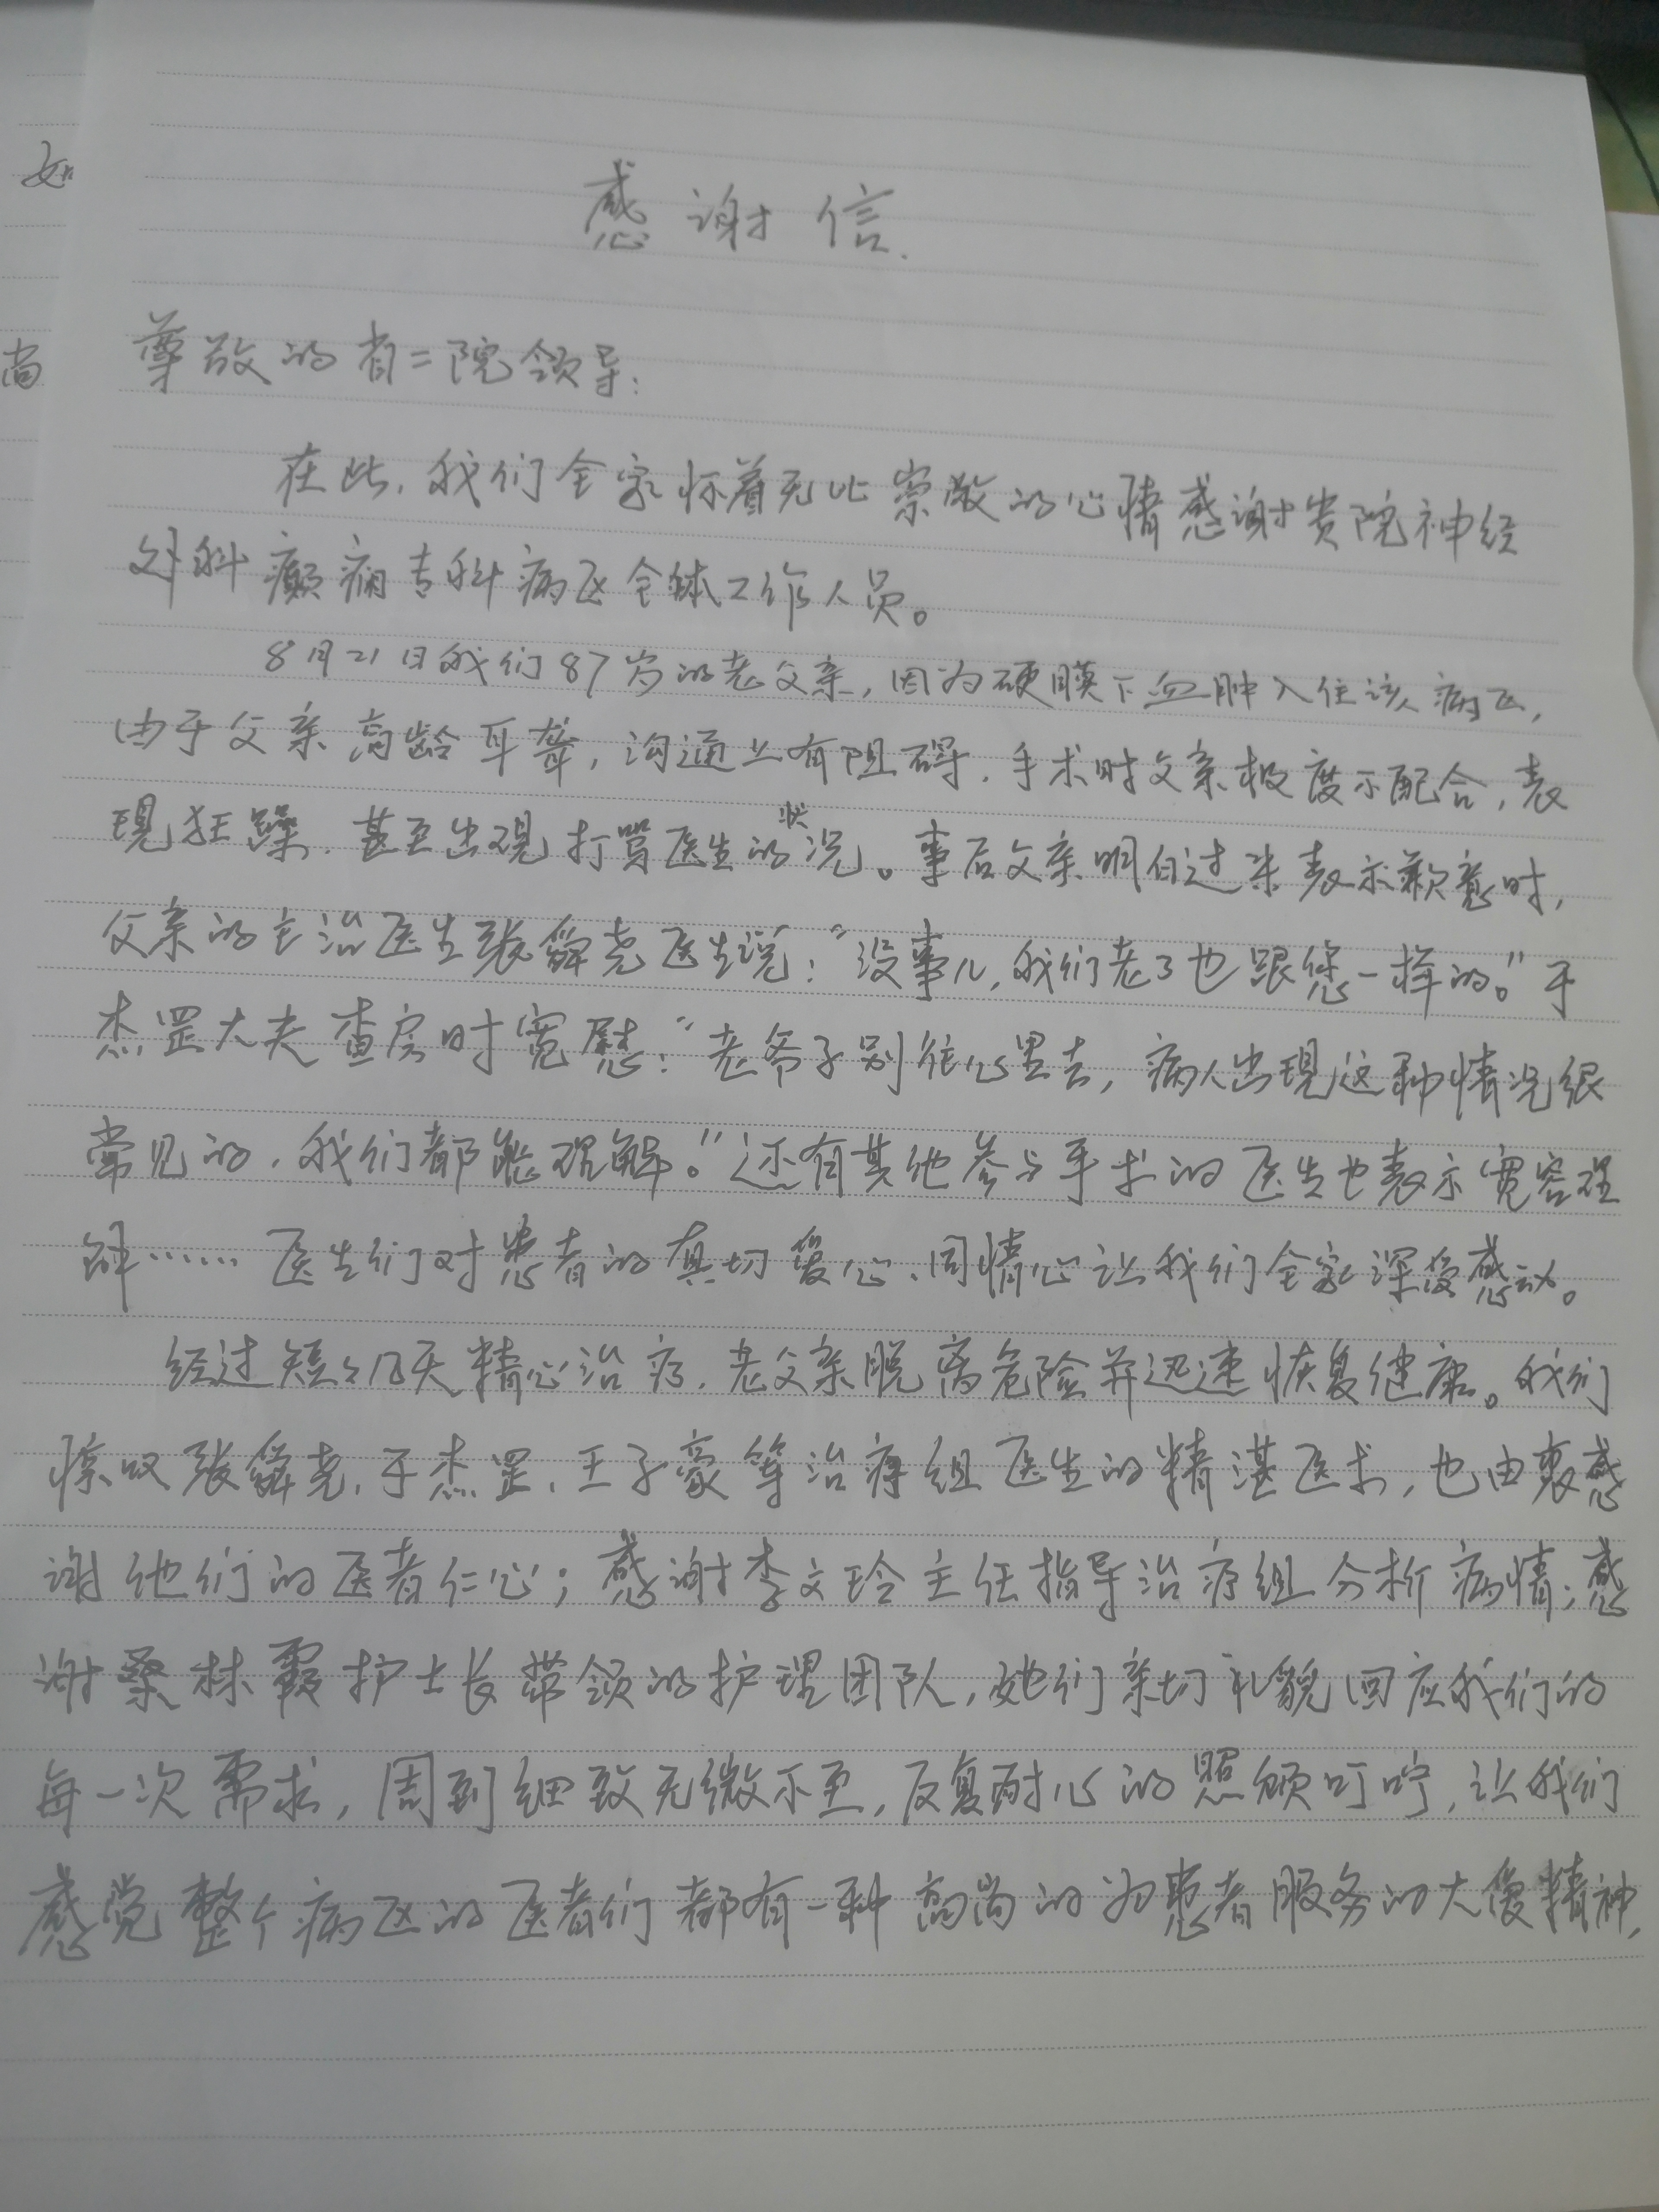 感谢信.
尊敬的省二院领导:
在此,我们全家怀着无比崇敬的心情感谢贵院神经
外科癫痫专科病区全体工作人员。
8月21日我们87岁的老父亲,因为硬膜下血肿入住该病区,
由于父亲高龄耳聋,沟通上有阻碍.手术时父亲极度不配合,表
现狂躁.甚至出现打骂医生的状况。事后父亲明白过来表示歉意时,
父亲的主治医生张舜尧医生说:“没事儿,我们老了也跟您一样的。”于
杰罡大夫查房时宽慰:“老爷子别往心里去,病人出现这种情况很
常见的,我们都能理解。”还有其他参与手术的医生也表示宽容理
解……医生们对患者的真切爱心、同情心让我们全家深受感动。
经过短短几天精心治疗.老父亲脱离危险并迅速恢复健康。我们
惊叹张舜尧、于杰罡、王子豪等治疗组医生的精湛医术,也由衷感
谢他们的医者仁心;感谢李文玲主任指导治疗组分析病情;感
谢桑林霞护士长带领的护理团队,她们亲切礼貌回应我们的
每一次需求,周到细致无微不至,反复耐心的照顾叮咛,让我们
感觉整个病区的医者们都有一种高尚的为患者服务的大爱精神,
如
尚